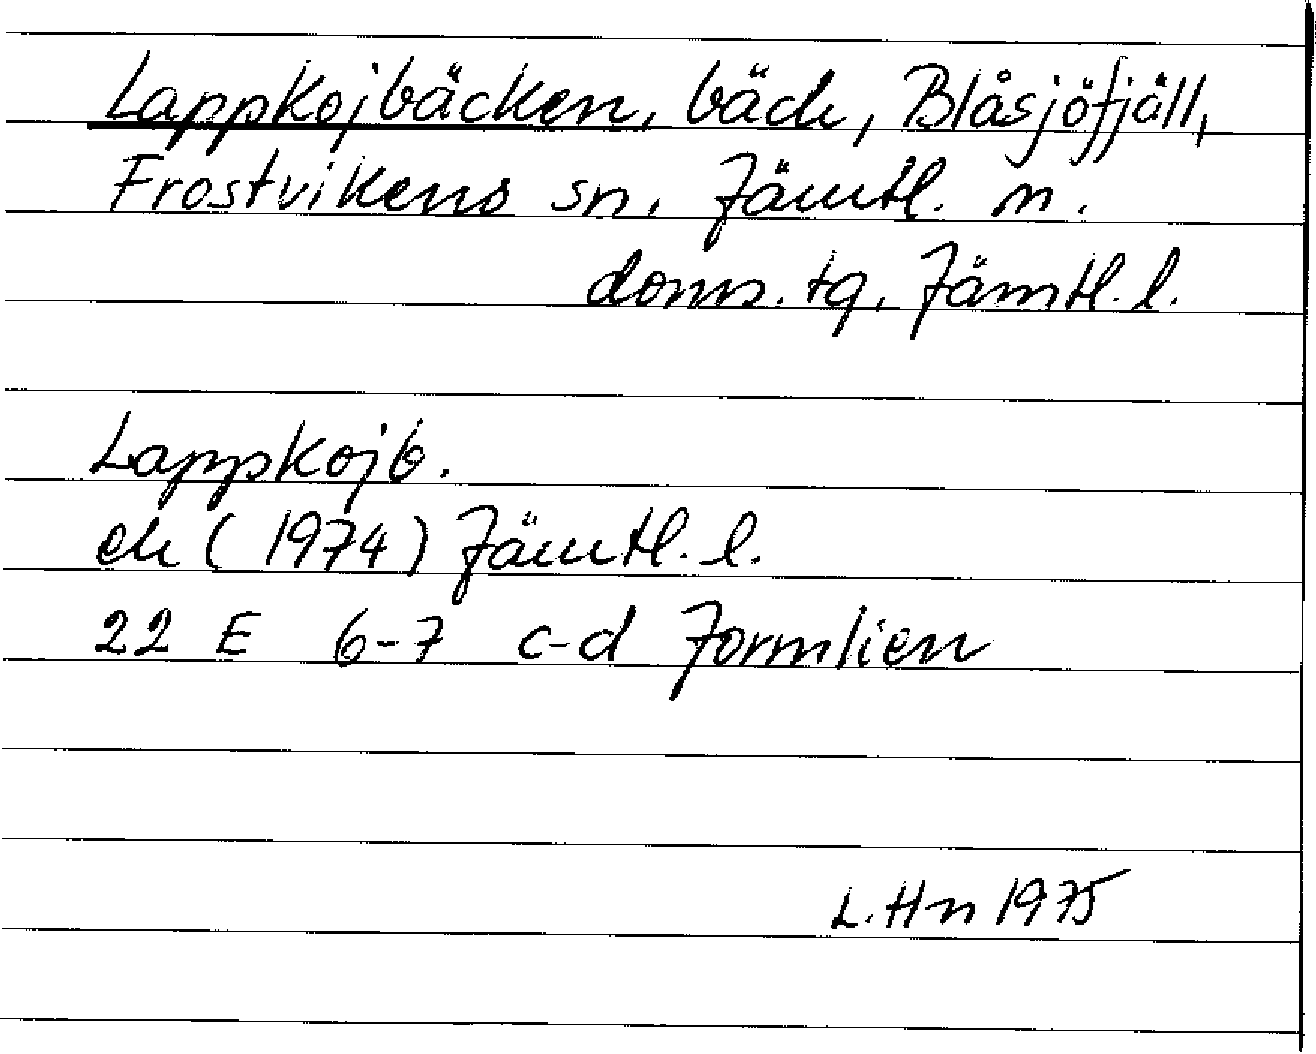 Lappkojbäcken, bäck, Blåsjöfjäll,
Frostvikens sn, Jämtl. n.
doms. tg, Jämtl. l.
Lappkojb.
ek (1974) Jämtl. l.
22 E 6-7 c-d Jormlien
L. Hn 1975